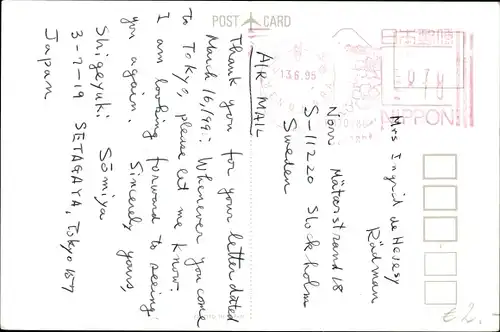 POST CARD
AIR MAIL
Thank you for your letter dated
March 16, 199 : Whenever you come
to Tokyo, please let me know.
I am looking forward to seeing
you again.
Sincerely yours,
Shigeyuki Sōmiya
3-7-19 SETAGAYA, Tokyo 157
Japan
13.6.95
日本郵便
70
NIPPON
Mrs Ingrid de Hevesy
Rådman
Norr Mälarstrand 18
S-11220 Stockholm
Sweden
€2.-